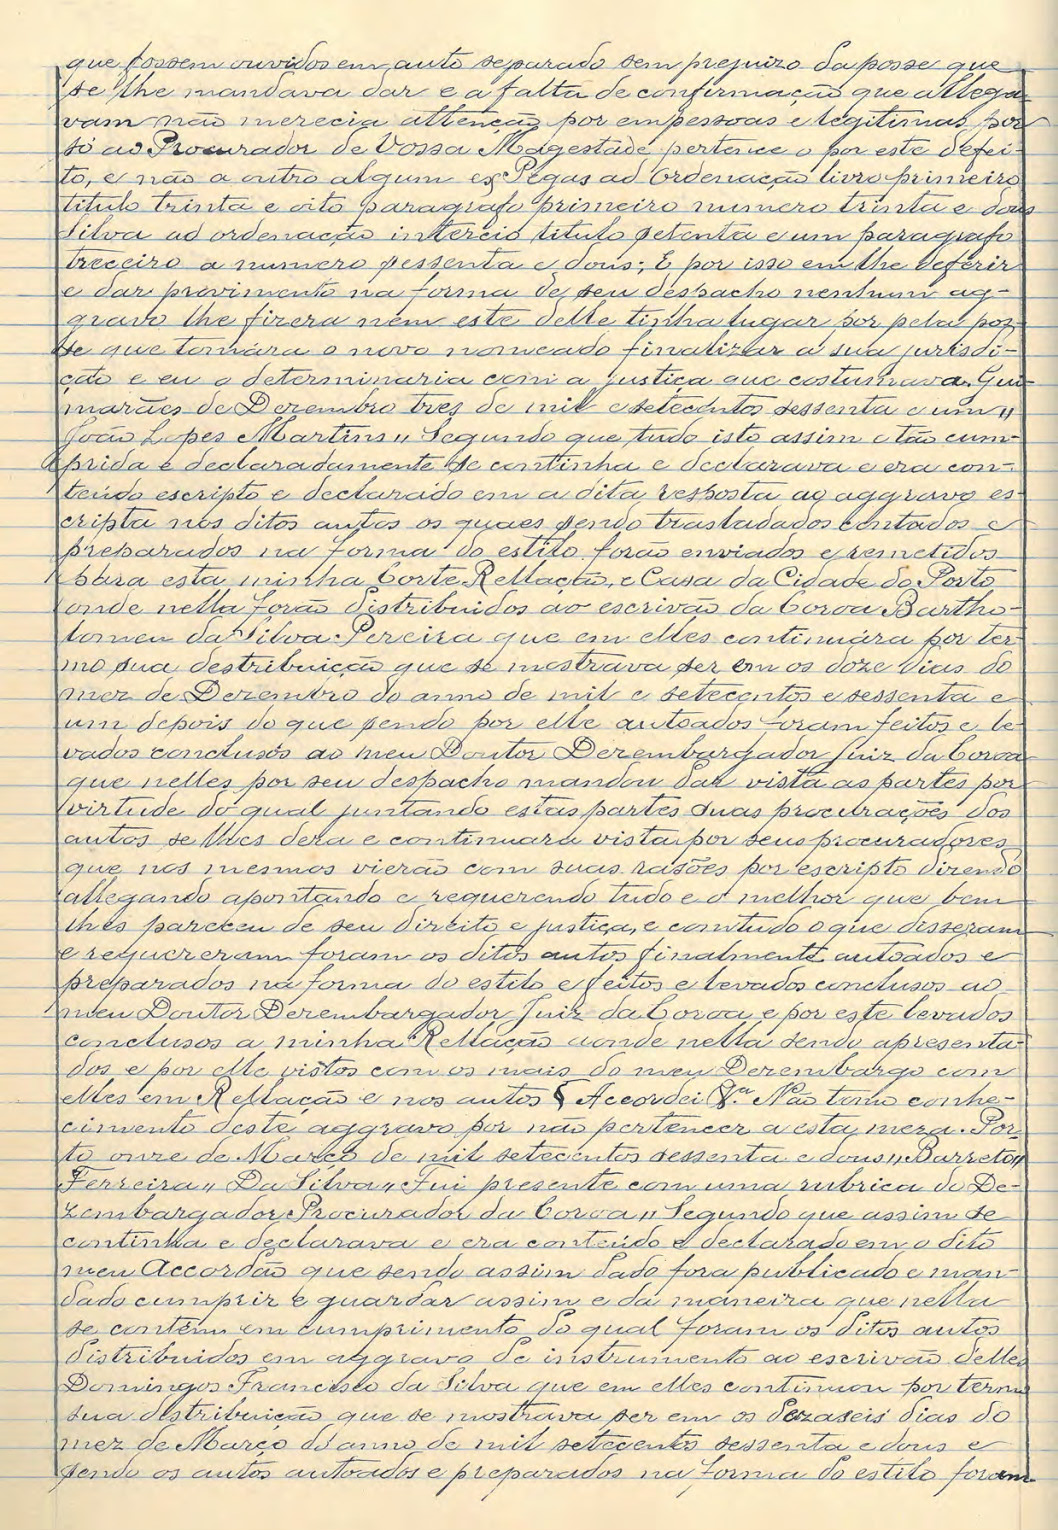 que fossem ouvidos em auto separado sem prejuizo da posse que
se lhe mandava dar e a falta de confirmação que allega-
vam não merecia attenção por em pessoas e legitimas por
só ao Procurador de Vossa Magestade pertence o por este defei-
to, e não a outro algum ex Pegas ad Ordenação livro primeiro
titulo trinta e oito paragrafo primeiro numero trinta e dous
Silva ad ordenação in tercio titulo setenta e um paragrafo
treceiro a numero sessenta e dous; E por isso em lhe deferir
e dar provimento na forma de seu despacho nenhum ag-
gravo lhe fizera nem este delle tinha lugar por pela pos-
se que tomára o novo nomeado finalizar a sua jurisdi-
ção e eu o determinaria com a justiça que costumava. Gui-
marães de Dezembro tres de mil e setecentos sessenta e um,,
João Lopes Martins,, Segundo que tudo isto assim e tão cum-
prida e declaradamente se continha e declarava e era con-
teúdo escripto e declarado em a dita resposta ao aggravo es-
cripta nos ditos autos os quaes sendo trasladados contados e
preparados na forma do estilo forão enviados e remetidos
para esta minha Corte Rellação, e Casa da Cidade do Porto
onde nella forão distribuidos ao escrivão da Coroa Bartho-
lomeu da Silva Pereira que em elles continuára por ter-
mo sua destribuição que se mostrava ser em os doze dias do
mez de Dezembro do anno de mil e setecentos e sessenta e
um depois do que sendo por elle autoados foram feitos e le-
vados conclusos ao meu Doutor Dezembargador Juiz da Coroa
que nelles por seu despacho mandou dar vista as partes por
virtude do qual juntando estas partes suas procurações dos
autos se lhes dera e continuara vista por seus procuradores
que nos mesmos vierão com suas rasões por escripto dizendo
allegando apontando e requerendo tudo e o melhor que bem
lhes pareceu de seu direito e justiça, e comtudo o que disseram
e requereram foram os ditos autos finalmente autoados e
preparados na forma do estilo e feitos e levados conclusos ao
meu Doutor Dezembargador Juiz da Coroa e por este levados
conclusos a minha Rellação aonde nella sendo apresenta-
dos e por elle vistos com os mais do meu Dezembargo com
elles em Rellação e nos autos § Accordei &.ª Não tomo conhe-
cimento deste aggravo por não pertencer a esta meza. Por-
to onze de Março de mil setecentos sessenta e dous,, Barreto,,
Ferreira,, Da Silva,, Fui presente com uma rubrica do De-
zembargador Procurador da Coroa,, Segundo que assim se
continha e declarava e era conteúdo e declarado em o dito
meu Accordão que sendo assim dado fora publicado e man-
dado cumprir e guardar assim e da maneira que nella
se contém em cumprimento do qual foram os ditos autos
distribuidos em aggravo de instrumento ao escrivão delles
Domingos Francisco da Silva que em elles continuou por termo
sua distribuição que se mostrava ser em os dezaseis dias do
mez de Março do anno de mil setecentos sessenta e dous e
sendo os autos autoados e preparados na forma do estilo foram